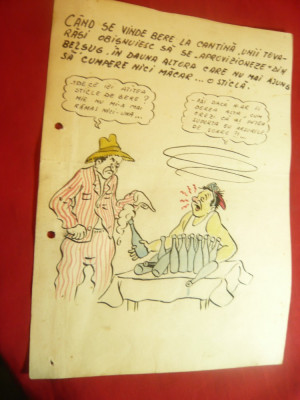 CÂND SE VINDE BERE LA CANTINĂ, UNII TOVA-
RĂȘI OBIȘNUIESC SĂ SE „APROVIZIONEZE" DIN
BELȘUG. ÎN DAUNA ALTORA CARE NU MAI AJUNG
SĂ CUMPERE NICI MĂCAR... O STICLĂ.
ATÎTEA
STICLE DE BERE?
MIE NU MI-A MAI
RĂMAS NICI-UNA...
DACĂ
BEREA ASTA, CUM
SĂ
DE